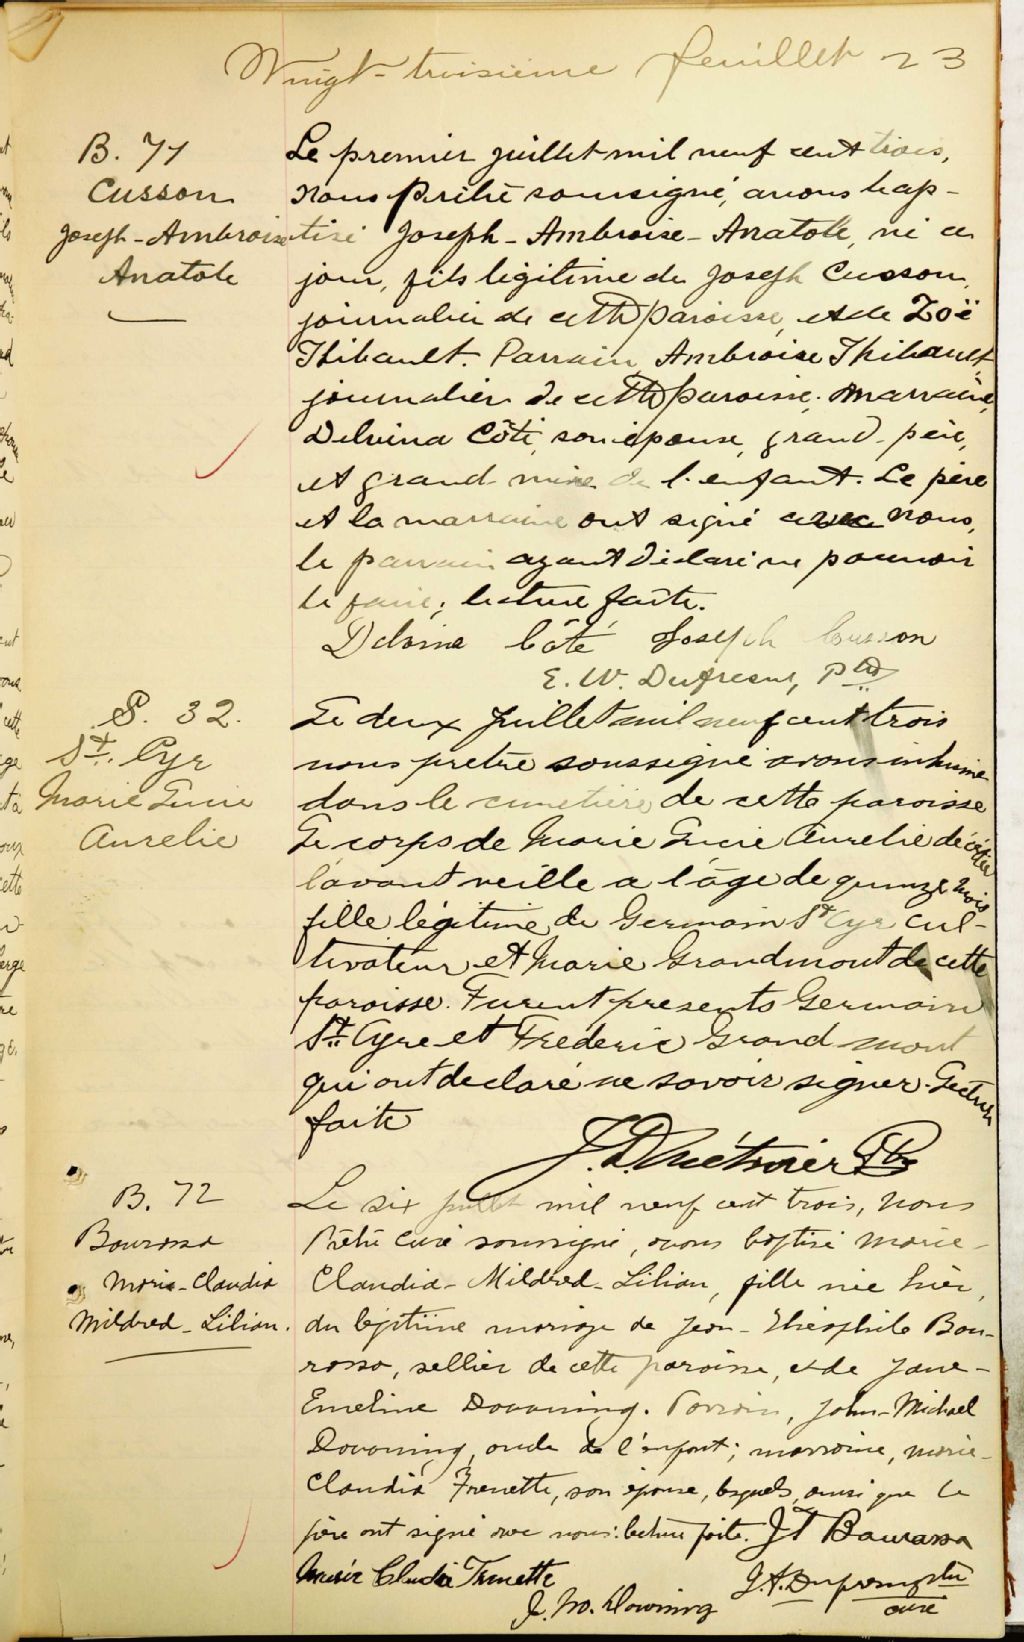 Vingt-troisième feuillet 23
B. 71
Cusson
Joseph-Ambroise
Anatole
Le premier juillet mil neuf cent trois,
Nous Prêtre soussigné, avons bap-
tisé Joseph-Ambroise-Anatole, né ce
jour, fils légitime de Joseph Cusson,
journalier de cette paroisse, et de Zoë
Thibault. Parrain, Ambroise Thibault,
journalier de cette paroisse; marraine,
Delvina Côté, son épouse, grand-père,
et grand-mère de l'enfant. Le père
et la marraine ont signé avec nous,
le parrain ayant déclaré ne pouvoir
le faire; lecture faite.
Delvina Côté Joseph Cusson
E. W. Dufresne, Ptre
S. 32.
St. Cyr
Marie Lucie
Aurelie
Le deux Juillet mil neuf cent trois
nous prêtre soussigné avons inhumé
dans le cimetière de cette paroisse
Le corps de Marie Lucie Aurelie décédée
l'avant veille a l'âge de quinze mois
fille légitime de Germain St Cyr cul-
tivateur et Marie Grandmont de cette
paroisse. Furent présents Germain
St. Cyre et Fréderic Grand mont
qui ont declaré ne savoir signer. Lecture
faite
J. D. Métivier Ptre
B. 72
Bourassa
Marie-Claudia
Mildred-Lilian.
Le six juillet mil neuf cent trois, nous
Prêtre Curé soussigné, avons baptisé Marie-
Claudia-Mildred-Lilian, fille née hier,
du légitime mariage de Jean-Théophile Bou-
rassa, sellier de cette paroisse, et de Jane-
Emeline Dowoning. Parrain, John-Michael
Dowoning, oncle de l'enfant; marraine, Marie-
Claudia Frenette, son épouse, lesquels, ainsi que le
père ont signé avec nous: lecture faite. J T Bourassa
Marie Claudia Frenette
J. M. Downing
curé